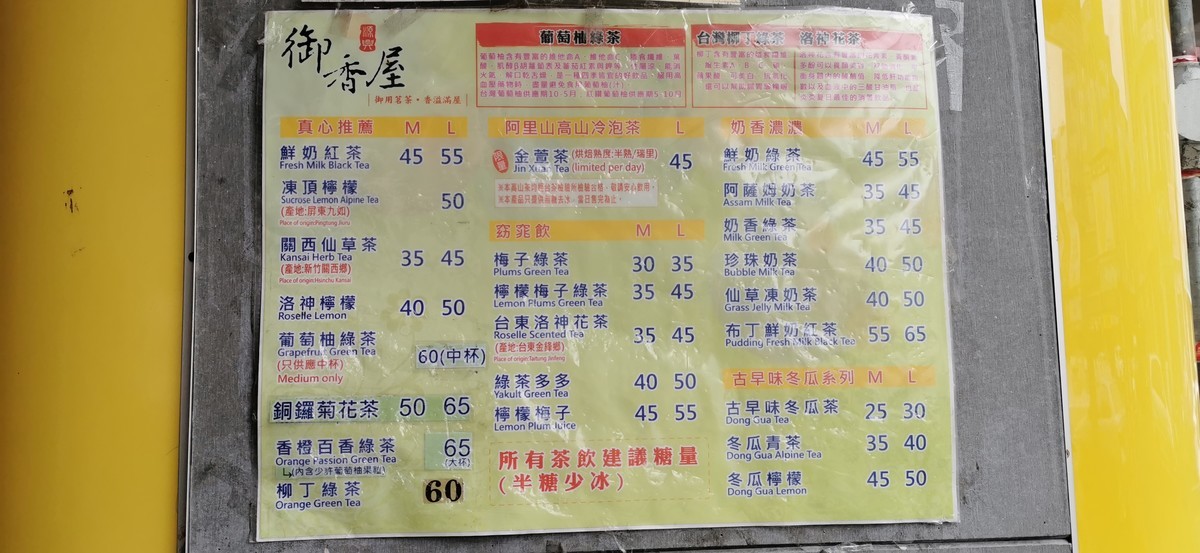 源興
御香屋
御用茗茶・香溢滿屋
葡萄柚綠茶
台灣柳丁綠茶 洛神花茶
真心推薦 M L
鮮奶紅茶 45 55
Fresh Milk Black Tea
凍頂檸檬 50
Sucrose Lemon Alpine Tea
(產地:屏東九如)
Place of origin:Pingtung Jiuru
關西仙草茶 35 45
Kansai Herb Tea
(產地:新竹關西鄉)
Place of origin:Hsinchu Kansai
洛神檸檬 40 50
Roselle Lemon
葡萄柚綠茶 60(中杯)
Grapefruit Green Tea
(只供應中杯)
Medium only
銅鑼菊花茶 50 65
香橙百香綠茶 65
Orange Passion Green Tea (大杯)
(內含少許葡萄柚果粒)
柳丁綠茶 60
Orange Green Tea
阿里山高山冷泡茶 L
金萱茶 (烘焙熟度:半熟/瑞里) 45
Jin Xuan Tea (limited per day)
窈窕飲 M L
梅子綠茶 30 35
Plums Green Tea
檸檬梅子綠茶 35 45
Lemon Plums Green Tea
台東洛神花茶 35 45
Roselle Scented Tea
(產地:台東金鋒鄉)
Place of origin:Taitung Jinfeng
綠茶多多 40 50
Yakult Green Tea
檸檬梅子 45 55
Lemon Plum Juice
所有茶飲建議糖量
(半糖少冰)
奶香濃濃 M L
鮮奶綠茶 45 55
Fresh Milk Green Tea
阿薩姆奶茶 35 45
Assam Milk Tea
奶香綠茶 35 45
Milk Green Tea
珍珠奶茶 40 50
Bubble Milk Tea
仙草凍奶茶 40 50
Grass Jelly Milk Tea
布丁鮮奶紅茶 55 65
Pudding Fresh Milk Black Tea
古早味冬瓜系列 M L
古早味冬瓜茶 25 30
Dong Gua Tea
冬瓜青茶 35 40
Dong Gua Alpine Tea
冬瓜檸檬 45 50
Dong Gua Lemon